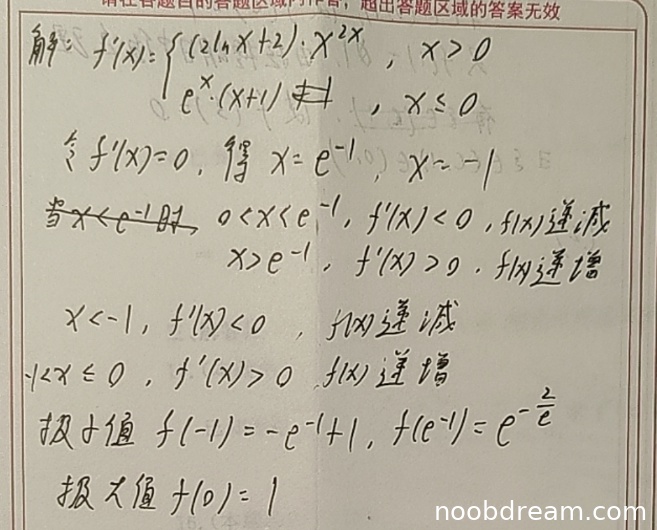 请在各题目的答题区域内作答，超出答题区域的答案无效
解：f'(x)={(2lnx+2)·x^{2x}, x>0
e^x·(x+1), x≤0
令f'(x)=0, 得 x=e^{-1}, x=-1
当x<e^{-1}时, 0<x<e^{-1}, f'(x)<0, f(x)递减
x>e^{-1}, f'(x)>0, f(x)递增
x<-1, f'(x)<0, f(x)递减
-1<x≤0, f'(x)>0 f(x)递增
极小值 f(-1)=-e^{-1}+1, f(e^{-1})=e^{-\frac{2}{e}}
极大值 f(0)=1
noobdream.com